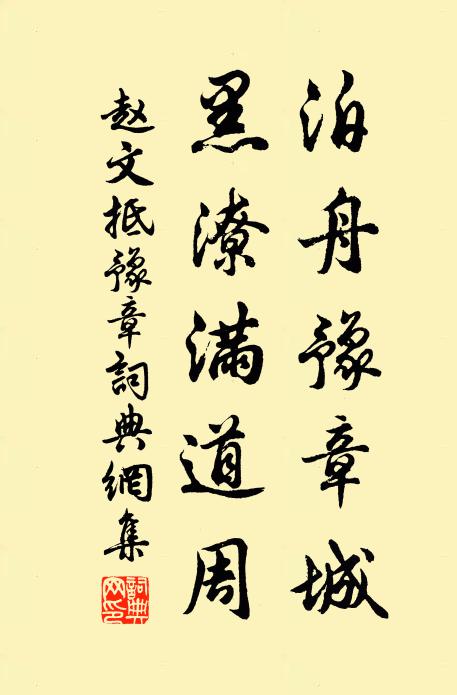 泊舟豫章城
黑潦滿道周
赵文抵豫章詞典網集
詞典網印